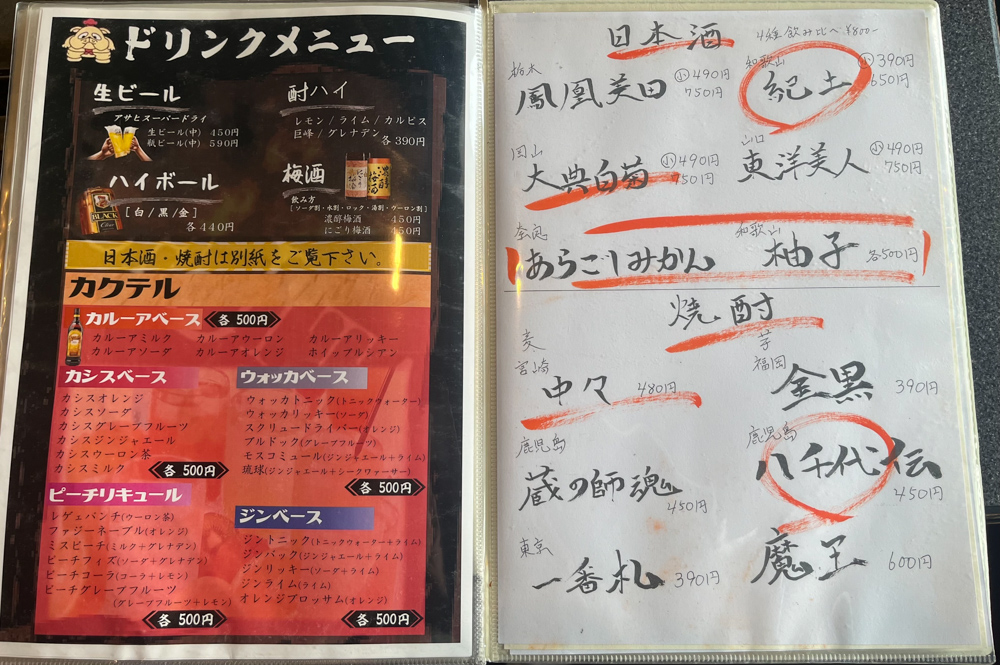 ドリンクメニュー
生ビール
アサヒスーパードライ
生ビール(中) 450円
瓶ビール(中) 590円
酎ハイ
レモン/ライム/カルピス
巨峰/グレナデン
各390円
ハイボール
[白/黒/金]
各440円
BLACK
梅酒
飲み方
[ソーダ割・水割・ロック・湯割・ウーロン割]
濃醇梅酒 450円
にごり梅酒 450円
日本酒・焼酎は別紙をご覧下さい。
カクテル
カルーアベース 各500円
カルーアミルク カルーアウーロン カルーアリッキー
カルーアソーダ カルーアオレンジ ホイップルシアン
カシスベース
カシスオレンジ
カシスソーダ
カシスグレープフルーツ
カシスジンジャエール
カシスウーロン茶
カシスミルク
各500円
ウォッカベース
ウォッカトニック(トニックウォーター)
ウォッカリッキー(ソーダ)
スクリュードライバー(オレンジ)
ブルドック(グレープフルーツ)
モスコミュール(ジンジャエール+ライム)
琉球(ジンジャエール+シークワァーサー)
各500円
ピーチリキュール
レゲェパンチ(ウーロン茶)
ファジーネーブル(オレンジ)
ミスピーチ(ミルク+グレナデン)
ピーチフィズ(ソーダ+グレナデン)
ピーチコーラ(コーラ+レモン)
ピーチグレープフルーツ
(グレープフルーツ+レモン)
各500円
ジンベース
ジントニック(トニックウォーター+ライム)
ジンバック(ジンジャエール+ライム)
ジンリッキー(ソーダ+ライム)
ジンライム(ライム)
オレンジブロッサム(オレンジ)
各500円
日本酒
4種飲み比べ ¥800-
栃木
鳳凰美田
小490円
750円
和歌山
紀土
小390円
650円
岡山
大典白菊
小490円
750円
山口
東洋美人
小490円
750円
奈良
あらごしみかん
和歌山
柚子
各500円
焼酎
麦
宮崎
中々 480円
芋
福岡
金黒 390円
鹿児島
蔵の師魂
450円
鹿児島
八千代伝
450円
東京
一番札 390円
魔王 600円